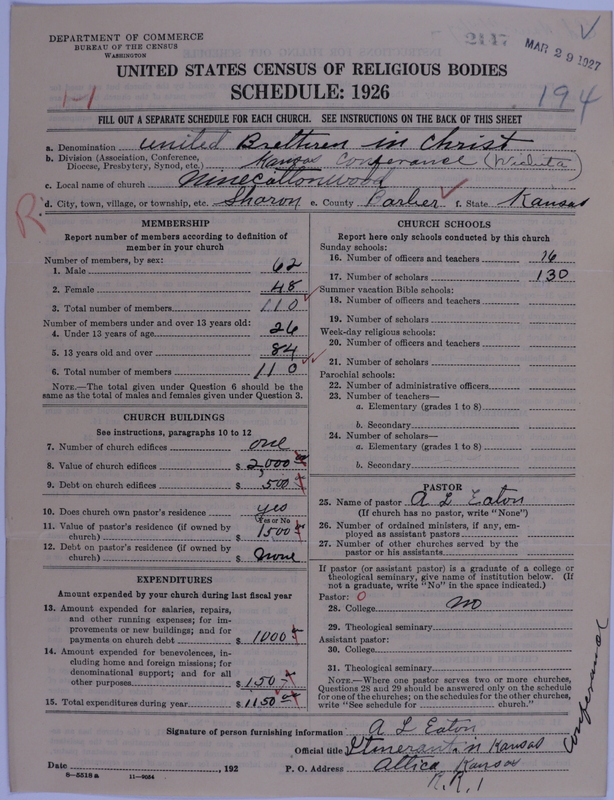 DEPARTMENT OF COMMERCE
BUREAU OF THE CENSUS
WASHINGTON
2147
MAR 29 1927
UNITED STATES CENSUS OF RELIGIOUS BODIES
SCHEDULE: 1926
1-1
194
FILL OUT A SEPARATE SCHEDULE FOR EACH CHURCH. SEE INSTRUCTIONS ON THE BACK OF THIS SHEET
a. Denomination United Brethren in Christ
b. Division (Association, Conference, Diocese, Presbytery, Synod, etc.) Kansas Conferance (Wichita)
c. Local name of church Ninecottonwood
d. City, town, village, or township, etc. Sharon e. County Barber f. State Kansas
R
MEMBERSHIP
Report number of members according to definition of
member in your church
Number of members, by sex:
1. Male 62
2. Female 48
3. Total number of members 110
Number of members under and over 13 years old:
4. Under 13 years of age 26
5. 13 years old and over 84
6. Total number of members 110
NOTE.—The total given under Question 6 should be
same as the total of males and females given under Question 3.
CHURCH BUILDINGS
See instructions, paragraphs 10 to 12
7. Number of church edifices one
8. Value of church edifices $ 2,000
9. Debt on church edifices $ 500
10. Does church own pastor's residence yes
Yes or No
11. Value of pastor's residence (if owned by
church) $ 1500
12. Debt on pastor's residence (if owned by
church) $ none
EXPENDITURES
Amount expended by your church during last fiscal year
13. Amount expended for salaries, repairs,
and other running expenses; for im-
provements or new buildings; and for
payments on church debt $ 1000
14. Amount expended for benevolences, in-
cluding home and foreign missions; for
denominational support; and for all
other purposes $ 150
15. Total expenditures during year $ 1150
CHURCH SCHOOLS
Report here only schools conducted by this church
Sunday schools:
16. Number of officers and teachers 16
17. Number of scholars 130
Summer vacation Bible schools:
18. Number of officers and teachers
19. Number of scholars
Week-day religious schools:
20. Number of officers and teachers
21. Number of scholars
Parochial schools:
22. Number of administrative officers
23. Number of teachers—
a. Elementary (grades 1 to 8)
b. Secondary
24. Number of scholars—
a. Elementary (grades 1 to 8)
b. Secondary
PASTOR
25. Name of pastor A L Eaton
(If church has no pastor, write "None")
26. Number of ordained ministers, if any, em-
ployed as assistant pastors
27. Number of other churches served by the
pastor or his assistants
If pastor (or assistant pastor) is a graduate of a college or
theological seminary, give name of institution below. (If
not a graduate, write "No" in the space indicated.)
Pastor: 0
28. College no
29. Theological seminary
Assistant pastor:
30. College
31. Theological seminary
NOTE.—Where one pastor serves two or more churches,
Questions 28 and 29 should be answered only on the schedule
for one of the churches; on the schedules for the other churches,
write "See schedule for church."
Signature of person furnishing information A L Eaton
Official title Itinerant in Kansas
conferance
Date , 192 P. O. Address Attica Kansas
R.R. 1
6—5518 a 11—9034